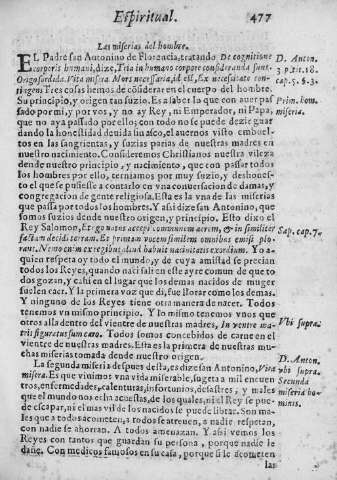 Espiritual. 477
Las miserias del hombre.
EL Padre san Antonino de Florencia, tratando De cognitione
corporis humani, dize, Tria in humano corpore consideranda sunt.
Origo sordida. Vita misera. Mors necessaria, id est, Ex necessitate con-
tingens. Tres cosas hemos de cõsiderar en el cuerpo del hombre.
Su principio, y origen tan suzio. Es a saber lo que auer pas
sado por mi, y por vos, y no ay Rey, ni Emperador, ni Papa,
que no aya passado por ellos con todo no se puede dezir guar
dando la honestidad deuida
en los sangrientas, y suzias parias de nuestras madres en
nuestro nacimiento. Consideremos Christianos nuestra vileza
dende nuestro principio, y nacimiento, que con passar todos
los hombres por ello, terniamos por muy suzio, y deshones-
to el que se pusiesse a contarlo en vna conuersacion de damas, y
congregacion de gente religiosa. Esta es la vna de las miserias
que passa por todos los hombres. Y assi dize san Antonino, que
somos suzios dende nuestro origen, y principio. Esto dixo el
Rey Salomon, Ergo natus accepi communem aerem, & in similiter
factam decidi terram. Et primam vocem similem omnibus emisi plo-
rans. Nemo enim ex regibus aliud habuit natiuitatis exordium. Yo a-
quien respeta oy todo el mundo, y de cuya amistad se precian
todos los Reyes, quando naci sali en este ayre comun de que to
dos gozan, y cahi en el lugar que los demas nacidos de muger
suelen caer. Y la primera voz que di, fue llorar como los demas.
Y ninguno de los Reyes tiene otra manera de nacer. Todos
tenemos vn mismo principio. Y lo mismo tenemos vnos que
otros alla dentro del vientre de nuestras madres, In ventre ma-
tris figuratus sum caro. Todos somos concebidos de carne en el
vientre de nuestras madres. Esta es la primera de nuestras mu-
chas miserias tomada dende nuestro origen.
La segunda miseria despues desta, es dize san Antonino, Vita
misera. Es que viuimos vna vida miserable, sugeta a mil encuen
tros, enfermedades, calenturas, infortunios, desastres, y males
que el mundo nos echa acuestas, de los quales, ni el Rey se pue-
de escapar, ni el mas vil de los nacidos se puede librar. Son ma-
les que a todos acometen, a todos se atreuen, a nadie respetan,
con nadie se ahorran. A todos amenazan. Y assi vemos los
Reyes con tantos que guardan su persona, porque nadie le
dañe. Con medicos famosos en su casa, porque si le acometen
las
D. Anton.
3 p. tit. 18.
cap. 5. §. 3.
Prim. hom.
miseria.
Sap. cap. 7.
Vbi supra.
D. Anton.
vbi supra.
Secunda
miseria ho-
minis.